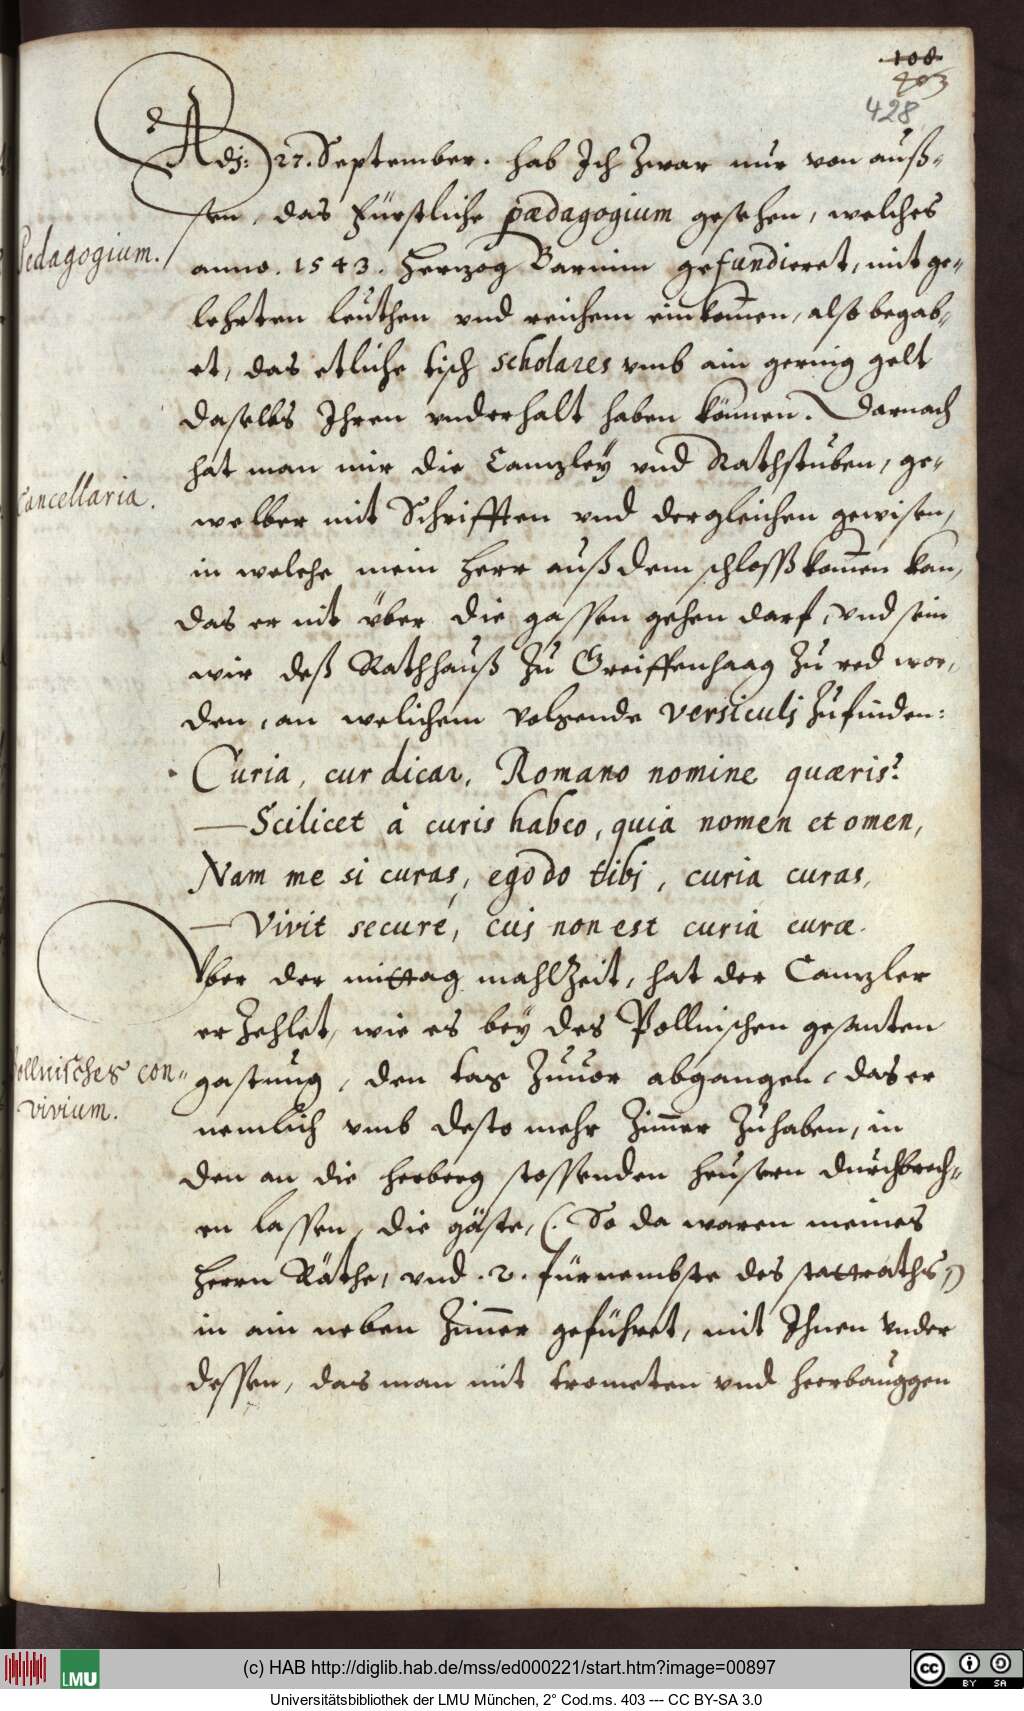 108
203
428
Adj: 27. September. hab Ich Zwar nur von auß-
sen, das Fürstliche pædagogium gesehen, welches
Pedagogium.
anno. 1543. Herzog Barnim gefundieret, mit ge-
lehrten leuthen vnd reichem einkom̄en, also begab-
et, das etliche tisch scholares vmb ain gering gelt
daselbs Ihren vnderhalt haben können. Darnach
hat man mir die Canzley vnd Rathstuben, ge-
Cancellaria.
welber mit Schrifften vnd dergleichen gewisen,
in welche mein Herr auß dem schlosß kom̄en kan,
das er nit über die gassen gehen darf, vnd sein
wir deß Rathhauß Zu Greiffenhaag Zu red wor,
den, an welichem volgende versiculj Zufinden:
Curia, cur dicar, Romano nomine quæris?
—Scilicet à curis habeo, quia nomen et omen,
Nam me si curas, ego do tibj, curia curas,
—Vivit securé, cuj non est curia curæ.
Vber der mittag mahlZeit, hat der Canzler
erZehlet, wie es bey des Pollnischen gesanten
Pollnisches con-
vivium.
gastung, den tag Zuuor abgangen, das er
nemlich vmb desto mehr Zim̄er Zuhaben, in
den an die herberg stossenden heusern durchbrech-
en lassen, die gäste, (. So da waren meines
Herrn Räthe, vnd .2. fürnembste des stattraths,)
in ain neben Zim̄er geführet, mit Ihnen vnder
dessen, das man mit trometen vnd heerbauggen
(c) HAB http://diglib.hab.de/mss/ed000221/start.htm?image=00897
LMU
cc BY SA
Universitätsbibliothek der LMU München, 2° Cod.ms. 403 --- CC BY-SA 3.0